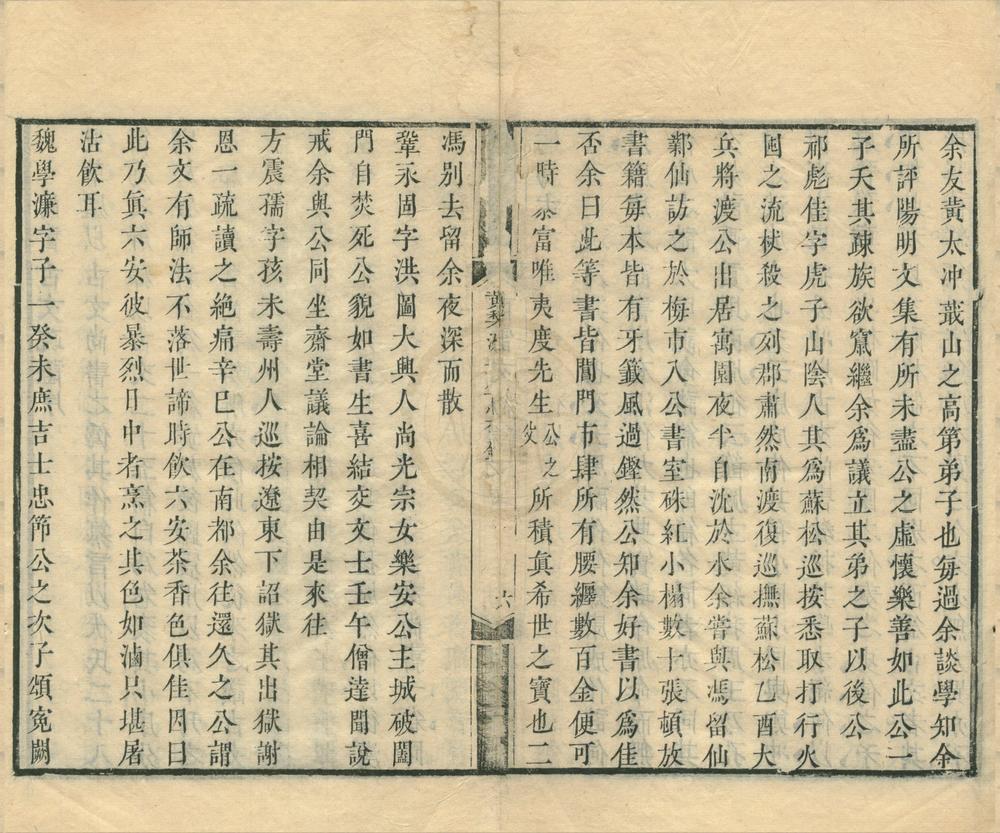 余友黃太冲蕺山之高第弟子也每過余談學知余
所評陽明文集有所未盡公之虛懷樂善如此公一
子夭其疎族欲窺繼余為議立其弟之子以後公
祁彪佳字虎子山陰人其為蘇松巡按悉取打行火
囤之流杖殺之列郡肅然南渡復巡撫蘇松乙酉大
兵將渡公出居寓園夜半自沈於水余嘗與馮留仙
鄴仙訪之於梅市入公書室硃紅小榻數十張頓放
書籍每本皆有牙籤風過鏗然公知余好書以為佳
否余曰此等書皆閶門市肆所有腰纏數百金便可
一時暴富唯夷度先生公之父所積眞希世之寶也二
六
馮別去留余夜深而散
鞏永固字洪圖大興人尚光宗女樂安公主城破闔
門自焚死公貌如書生喜結交文士壬午僧逵聞說
戒余與公同坐齋堂議論相契由是來往
方震孺字孩未壽州人巡按遼東下詔獄其出獄謝
恩一疏讀之絶痛辛巳公在南都余往還久之公謂
余文有師法不落世諦時飲六安茶香色俱佳因曰
此乃眞六安彼暴烈日中者烹之其色如滷只堪屠
沽飲耳
魏學濂字子一癸未庶吉士忠節公之次子頌寃闕